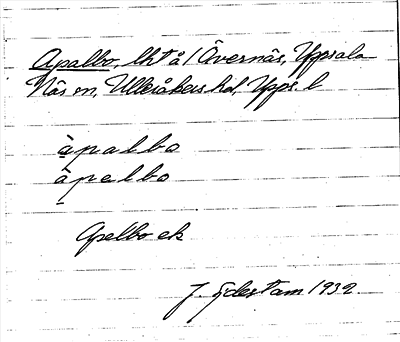 Apalbo, lht å / Övernäs, Uppsala-
Näs sn, Ulleråkers hd, Upps. l
àpalbo
àpelbo
Apelbo ek
J. Sjöestam 1932